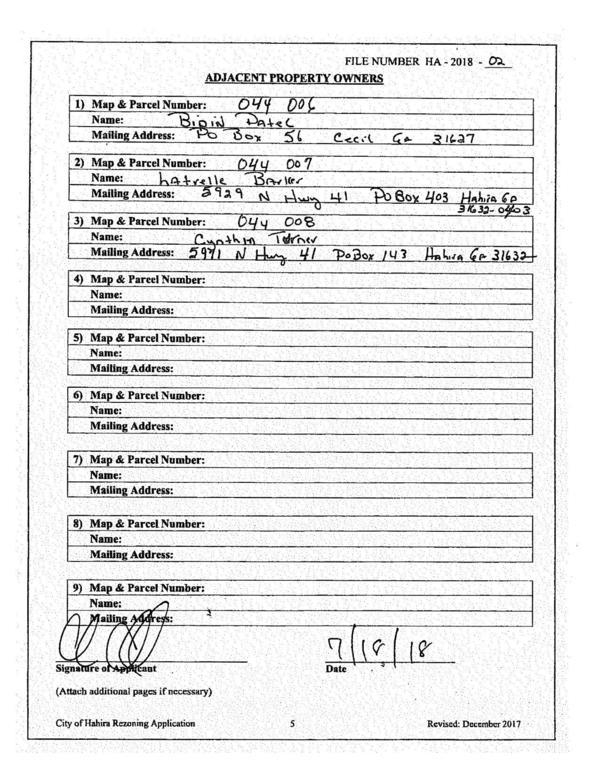 FILE NUMBER HA - 2018 - 02
ADJACENT PROPERTY OWNERS
1) Map & Parcel Number: 044 006
Name: Bipin Patel
Mailing Address: PO Box 56 Cecil Ga 31627
2) Map & Parcel Number: 044 007
Name: Latrelle Barker
Mailing Address: 5929 N Hwy 41 PO Box 403 Hahira GA
31632-0403
3) Map & Parcel Number: 044 008
Name: Cynthia Turner
Mailing Address: 5971 N Hwy 41 PoBox 143 Hahira GA 31632
4) Map & Parcel Number:
Name:
Mailing Address:
5) Map & Parcel Number:
Name:
Mailing Address:
6) Map & Parcel Number:
Name:
Mailing Address:
7) Map & Parcel Number:
Name:
Mailing Address:
8) Map & Parcel Number:
Name:
Mailing Address:
9) Map & Parcel Number:
Name:
Mailing Address:
7/18/18
Signature of Applicant Date
(Attach additional pages if necessary)
City of Hahira Rezoning Application 5 Revised: December 2017